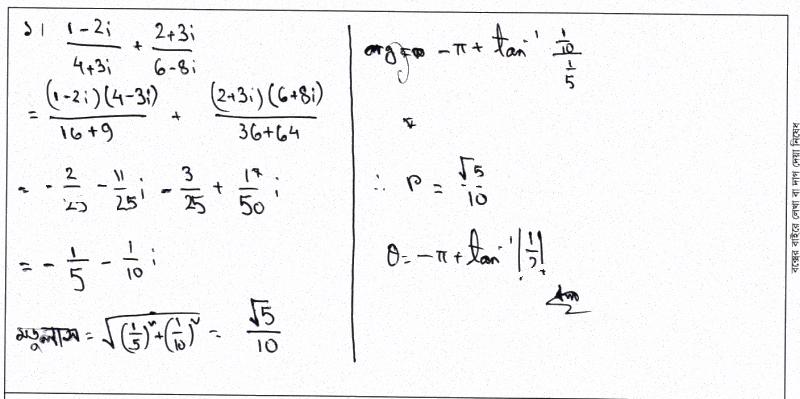 ১। (1-2i)/(4+3i) + (2+3i)/(6-8i)
= (1-2i)(4-3i)/(16+9) + (2+3i)(6+8i)/(36+64)
= -2/25 - 11/25 i - 3/25 + 17/50 i
= -1/5 - 1/10 i
মডুলাস = √((1/5)² + (1/10)²) = √5/10
-π + tan⁻¹ (1/10)/(1/5)
∴ r = √5/10
θ = -π + tan⁻¹ |1/2|
বক্সের বাইরে লেখা বা দাগ দেয়া নিষেধ